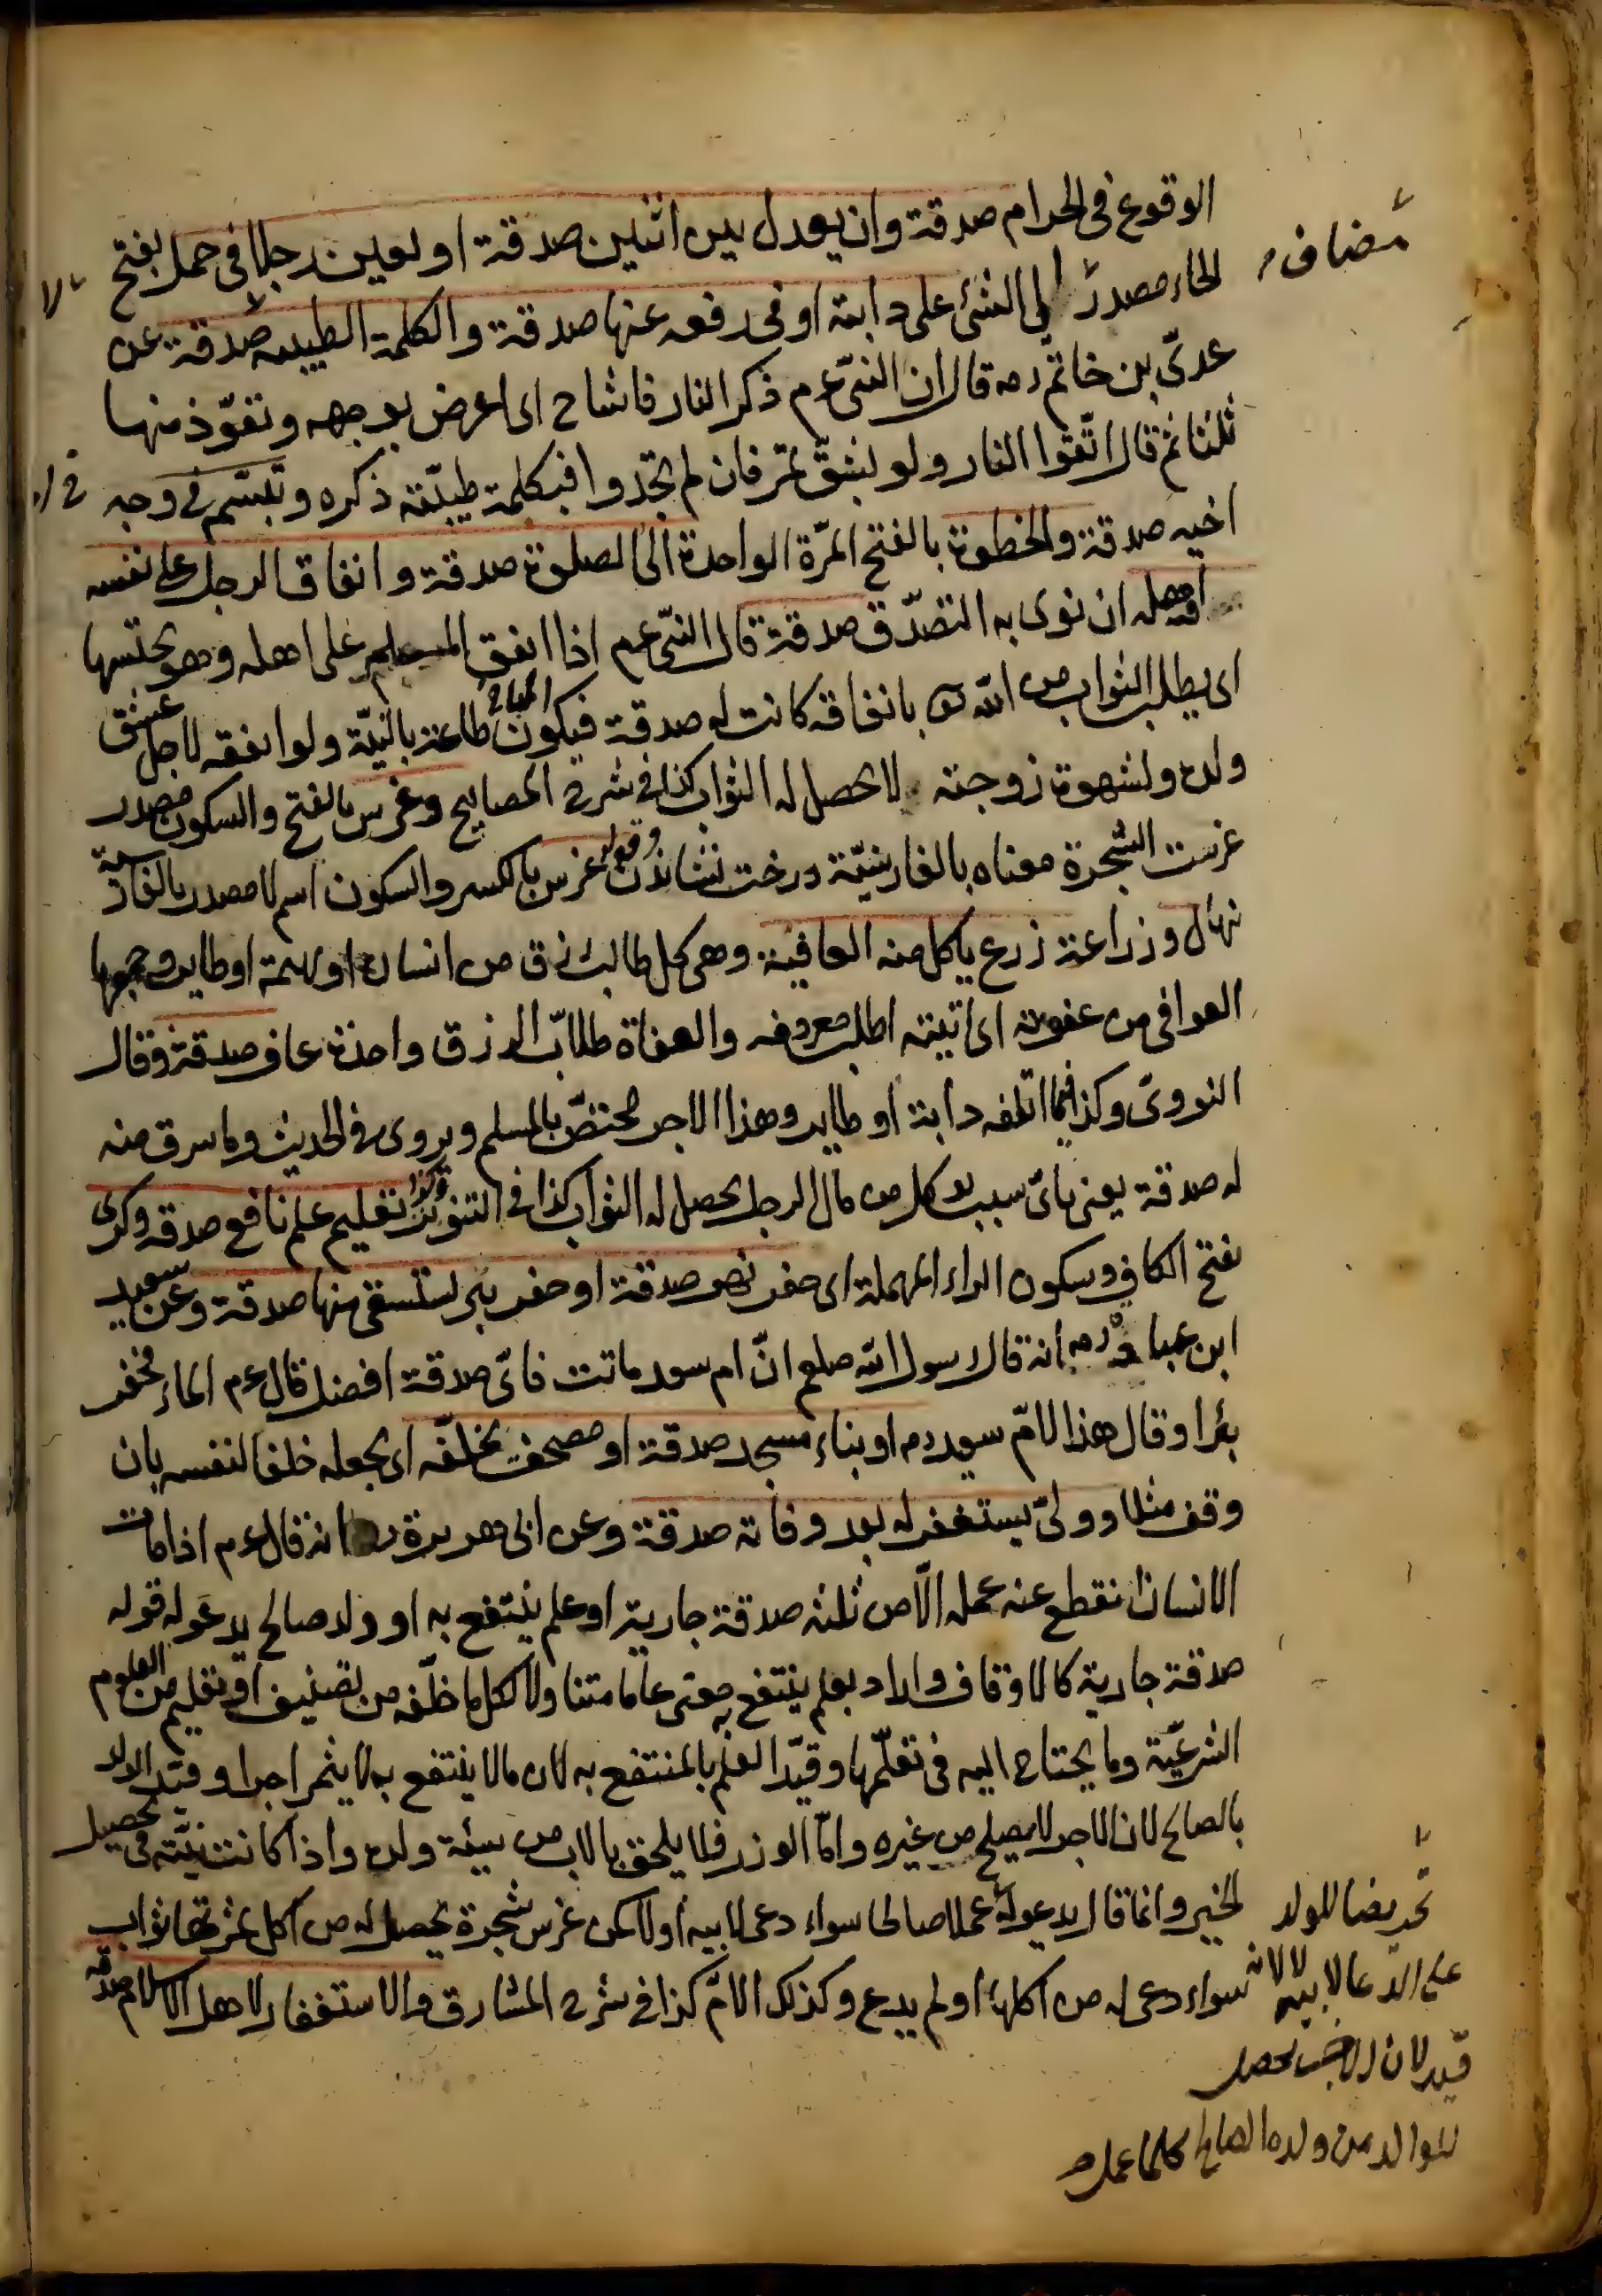 الوقوع فى الحرام صدقة وان يعدل بين اثنين صدقة او يعين رجلا فى حمل بفتح
الحاء مصدر الى الشئ على دابته او فى رفعه عنها صدقة والكلمة الطيبة صدقة عن
مضاف
عدىّ بن حاتم رضه قال ان النبىّ عم ذكر النار فاشاح اى اعرض بوجهه وتعوّذ منها
ثلثا ثم قال اتّقوا النار ولو بشقّ تمر فان لم تجدوا فبكلمة طيبّة ذكره وتبسّم فى وجه
اخيه صدقة والخطوة بالفتح المرّة الواحدة الى الصلوة صدقة وانفاق الرجل على نفسه
واهله ان نوى به التصدّق صدقة قال النبىّ عم اذا انفق المسلم على اهله وهو يحتسبها
اى يطلب الثواب من اللّه تع بانفاقه كانت له صدقة فيكون المباح طاعة بالنيّة ولو انفقه لاجل عشق
ولده ولشهوة زوجته لا يحصل له الثواب كذا فى شرح المصابيح وغرس بالفتح والسكون مصدر
غرست الشجرة معناه بالفارسيّة درخت نشاندن وقوله غرس بالكسر والسكون اسم لا مصدر بالفارسيّة
نهال وزراعة زرع ياكل منه العافية وهى كل طالب رزق من انسان او بهيمة او طاير وجمعها
العوافى من عفوته اى اتيته اطلب معروفه والعفاة طلاّب الرزق واحدة عاف صدقة وقال
النووىّ وكذا فيما اتلفه دابة او طاير وهذا الاجر مختصّ بالمسلم ويروى فى الحديث وما سرق منه
له صدقة يعنى باىّ سبب يوكل من مال الرجل يحصل له الثواب كذا فى التنوير وكذا تعليم علم نافع صدقه وكرى
بفتح الكاف وسكون الراء المهملة اى حفر نهر صدقة او حفر بئر لستسقى منها صدقة وعن سعيد
ابن عبادة رضه انه قال لرسول اللّه صلعم انّ ام سعد ماتت فاىّ صدقة افضل قال عم الماء فحفر
بئرا وقال هذا لامّ سعد رضه او بناء مسجد صدقة او مصحف يخلّفه اى يجعله خلفا لنفسه بان
وقف مثلا وولىّ يستغفر له بعد وفاته صدقة وعن ابى هريرة رضه انه قال عم اذا مات
الانسان انقطع عنه عمله الاّ من ثلثه صدقة جارية او علم ينتفع به او ولد صالح يدعو له قوله
صدقة جارية كالاوقاف واراد بعلم ينتفع به معنى عاما متناولا لكل ما خلّفه من تصنيف او تعليم من العلوم
الشرعيّة وما يحتاج اليه فى تعلّمها وقيّد العلم بالمنتفع به لان مالا ينتفع به لا يثمر اجرا وقيّد الولد
بالصالح لان الاجر لا يحصل من غيره وامّا الوزر فلا يلحق بالاب من سيئة ولده واذا كانت نيّته فى تحصيل
الخير وانما قال يدعو له عملا صالحا سواء دعى لابيه اولا كمن غرس شجرة يحصل له من اكل ثمرتها ثواب
سواء دعى له من اكلها او لم يدع وكذلك الامّ كذا فى شرح المشارق والاستغفار لاهل الاسلام صدقه
تحريضا للولد
على الدّعا لابيه لا لانه
قيد لان الاجر يحصل
للوالد من ولده الصالح كلما عمل